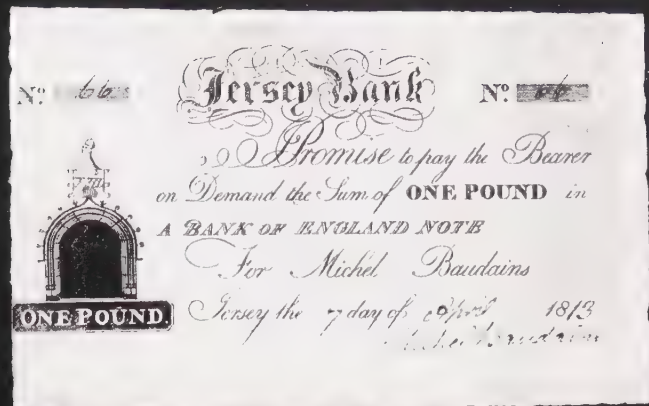 Nº 66 Jersey Bank Nº 66
I Promise to pay the Bearer
on Demand the Sum of ONE POUND in
A BANK OF ENGLAND NOTE
For Michel Baudains
ONE POUND. Jersey the 7 day of April 1813
Michel Baudains